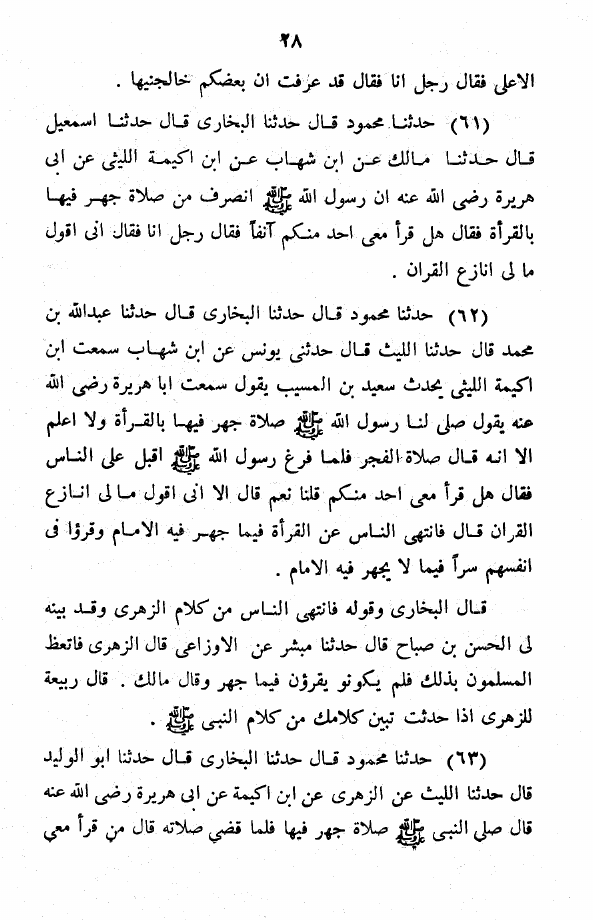 ٢٨
الاعلى فقال رجل انا فقال قد عرفت ان بعضكم خالجنيها .
(٦١) حدثنا محمود قال حدثنا البخارى قال حدثنا اسمعيل
قال حدثنا مالك عن ابن شهاب عن ابن اكيمة الليثى عن ابى
هريرة رضى الله عنه ان رسول الله ﷺ انصرف من صلاة جهر فيها
بالقرأة فقال هل قرأ معى احد منكم آنفاً فقال رجل انا فقال انى اقول
ما لى انازع القران .
(٦٢) حدثنا محمود قال حدثنا البخارى قال حدثنا عبدالله بن
محمد قال حدثنا الليث قال حدثنى يونس عن ابن شهاب سمعت ابن
اكيمة الليثى يحدث سعيد بن المسيب يقول سمعت ابا هريرة رضى الله
عنه يقول صلى لنا رسول الله ﷺ صلاة جهر فيها بالقرأة ولا اعلم
الا انه قال صلاة الفجر فلما فرغ رسول الله ﷺ اقبل على الناس
فقال هل قرأ معى احد منكم قلنا نعم قال الا انى اقول مالى انازع
القران قال فانتهى الناس عن القرأة فيما جهر فيه الامام وقرؤا فى
انفسهم سراً فيما لا يجهر فيه الامام .
قال البخارى وقوله فانتهى الناس من كلام الزهرى وقد بينه
لى الحسن بن صباح قال حدثنا مبشر عن الاوزاعى قال الزهرى فاتعظ
المسلمون بذلك فلم يكونو يقرؤن فيما جهر وقال مالك . قال ربيعة
للزهرى اذا حدثت تبين كلامك من كلام النبى ﷺ .
(٦٣) حدثنا محمود قال حدثنا البخارى قال حدثنا ابو الوليد
قال حدثنا الليث عن الزهرى عن ابن اكيمة عن ابى هريرة رضى الله عنه
قال صلي النبى ﷺ صلاة جهر فيها فلما قضي صلاته قال من قرأ معي